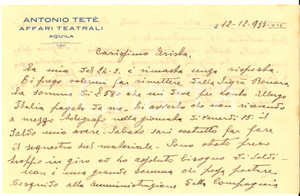 ANTONIO TETÈ
AFFARI TEATRALI
AQUILA
12-12-933-XII
Carissimo Arista
La mia del 24-3. è rimasta senza risposta.
Vi prego volermi far rimettere dalla Sig.ra
la somma di £580 che mi deve per conto Albergo
Italia pagato da me. Vi avverto che non ricevendo
a mezzo telegrafo nella giornata di Venerdì 15. il
saldo mio avere. Sabato sarò costretto far fare
il sequestro sul materiale. Sono stato preso
troppo in giro ed ho assoluto bisogno di soldi.
Non è una grande somma di poter portare
disguido alla amministrazione della Compagnia